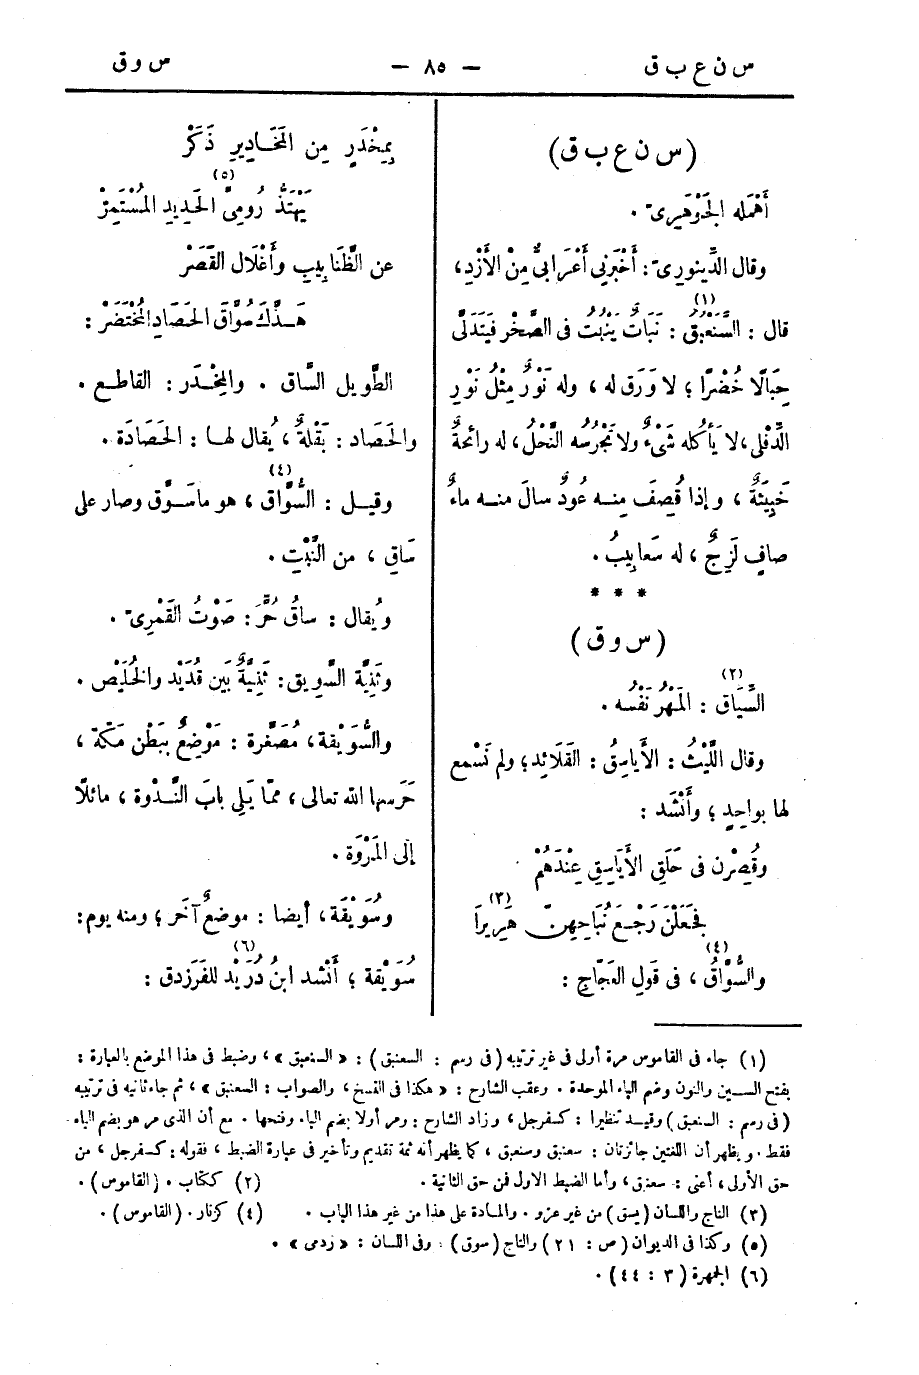 س ن ع ب ق
— ٨٥ —
س و ق
(س ن ع ب ق)
أَهْمَله الجَوْهَرِىّ .
وقال الدِّينورىّ : أَخْبَرنِى أَعْرَابىٌّ مِنْ الأَزْدِ،
قال : السَّنَعْبُقُ (١) : نَبَاتٌ يَنْبُتُ فى الصَّخْر فيَتَدَلَّى
حِبَالًا خُضْرًا ؛ لا وَرَق له ، وله نَوْرٌ مِثْلُ نَوْرِ
الدِّفْلَى، لا يَأكله شَىْءٌ ولا تَجْرُسُه النَّحْلُ، له رائحةٌ
خَبِيثَةٌ ، وإذا قُصِفَ مِنـه عُودٌ سالَ منـه ماءٌ
صافٍ لَزِجٌ ، له سَعابِيبُ .
* * *
(س و ق)
السِّيَاق (٢) : المَهْرُ نَفْسُه .
وقال اللَّيْثُ : الأَيَاسِقُ : القَلَائِد ؛ ولم نَسْمع
لها بواحِدٍ ؛ وأَنْشَد :
وقُصِرْن فى حَلَقِ الأَيَاسِقِ عِنْدَهُمْ
فَجَعَلْنَ رَجْعَ نُبَاحِهِنّ هَرِيرَا (٣)
والسُّوَّاقُ (٤) ، فى قَولِ العَجّاجِ :
بِمِخْدَرٍ مِن المَخَادِيرِ ذَكَرْ
يَهْتَذُّ رُومِىَّ (٥) الحَدِيدِ المُسْتَمِرّ
عن الظَّنابِيبِ وأَغْلَالِ القَصَرْ
هَــذَّكَ سُوَّاقَ الحَصَادِ المُخْتَضَرْ :
الطَّوِيل السَّاق . والمِخْدَر : القاطع .
والحَصاد : بَقْلةٌ ، يُقال لهـا : الحَصَادَة .
وقيــل : السُّوَّاق (٤) ، هو ماسَوَّق وصار على
سَاقٍ ، من النَّبْتِ .
ويُقال : ساقُ حُرّ : صَوْتُ القَمْرِىّ .
وثَنِيَّة السَّوِيق : ثَنِيَّةٌ بَين قُدَيْد والخُلَيْص .
والسُّوَيقة ، مُصَغَّرة : مَوْضِعٌ بِبَطْن مَكَّةَ ،
حَرَسها الله تعالى ، ممّا يَلِى بابَ النَّـدْوة ، مائلًا
إلى المَرْوَة .
وسُوَيْقَة ، أيضا : موضعٌ آخَر ؛ ومنه يوم :
سُوَيْقة ؛ أَنْشد ابنُ دُرَيْد (٦) للفَرَزدق :
(١) جاء فى القاموس مرة أولى فى غير ترتيبه (فى رسم : السعنبق) : « السنعبق » ، وضبط فى هذا الموضع بالعبارة :
بفتح السـين والنون وضم الباء الموحدة . وعقب الشارح : « هكذا فى النسخ ، والصواب : السعنبق » ، ثم جاء ثانيه فى ترتيبه
(فى رسم : السنعبق) وقيـد تنظيرا : كسفرجل ، وزاد الشارح : ومر أولا بضم الباء وفتحها . مع أن الذى مر هو بضم الباء
فقط . ويظهر أن اللغتين جائزتان : سعنبق وسنعبق ، كما يظهر أنه ثمة تقديم وتأخير فى عبارة الضبط ، فقوله : كسفرجل ، من
حق الأولى، أعنى : سعنبق ، وأما الضبط الاول فمن حق الثانية . (٢) ككتاب . (القاموس) .
(٣) التاج واللسان (يسق) من غير عزو . والمادة على هذا من غير هذا الباب . (٤) كزنار . (القاموس) .
(٥) وكذا فى الديوان (ص : ٢١) والتاج (سوق) . وفى اللسان : « ردمى » .
(٦) الجمهرة (٣ : ٤٤) .